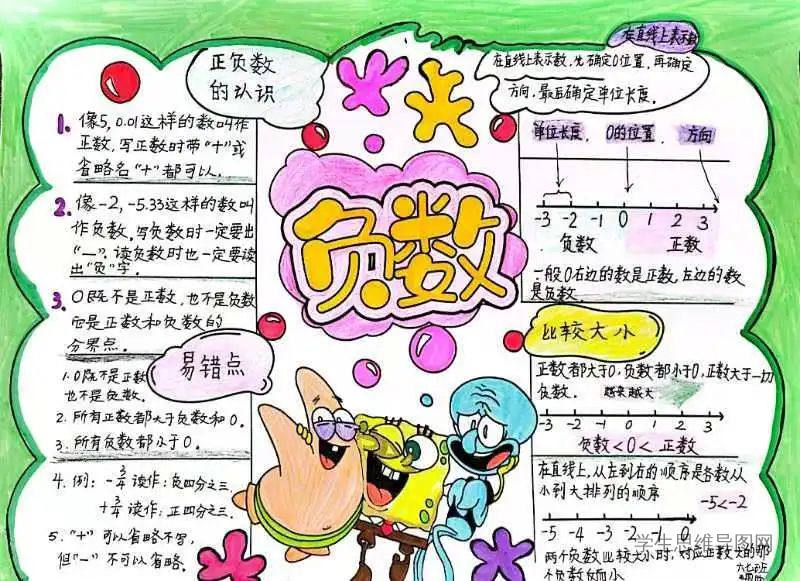 正负数
的认识
1. 像5,0.01这样的数叫作
正数,写正数时带"+"或
省略名"+"都可以.
2. 像-2,-5.33这样的数叫
作负数,写负数时一定要出
"-".读负数时也一定要读
出"负"字.
3. 0既不是正数,也不是负数
它是正数和负数的
分界点.
易错点
1. 0既不是正数
也不是负数.
2. 所有正数都大于负数和0.
3. 所有负数都小于0.
4. 例: -3/4 读作:负四分之三
+3/4 读作:正四分之三.
5. "+"可以省略不写,
但"-"不可以省略.
负数
在直线上表示数
在直线上表示数,先确定0位置,再确定
方向,最后确定单位长度.
单位长度 0的位置 方向
-3 -2 -1 0 1 2 3
负数 正数
一般0右边的数是正数,左边的数
是负数.
比较大小
正数都大于0,负数都小于0,正数大于一切
负数. 越来越大
-3 -2 -1 0 1 2 3
负数<0<正数
在直线上,从左到右的顺序是各数从
小到大排列的顺序
-5<-2
-5 -4 -3 -2 -1 0
两个负数比较大小时,对应正数大的那
个负数反而小.
学生思维导图网